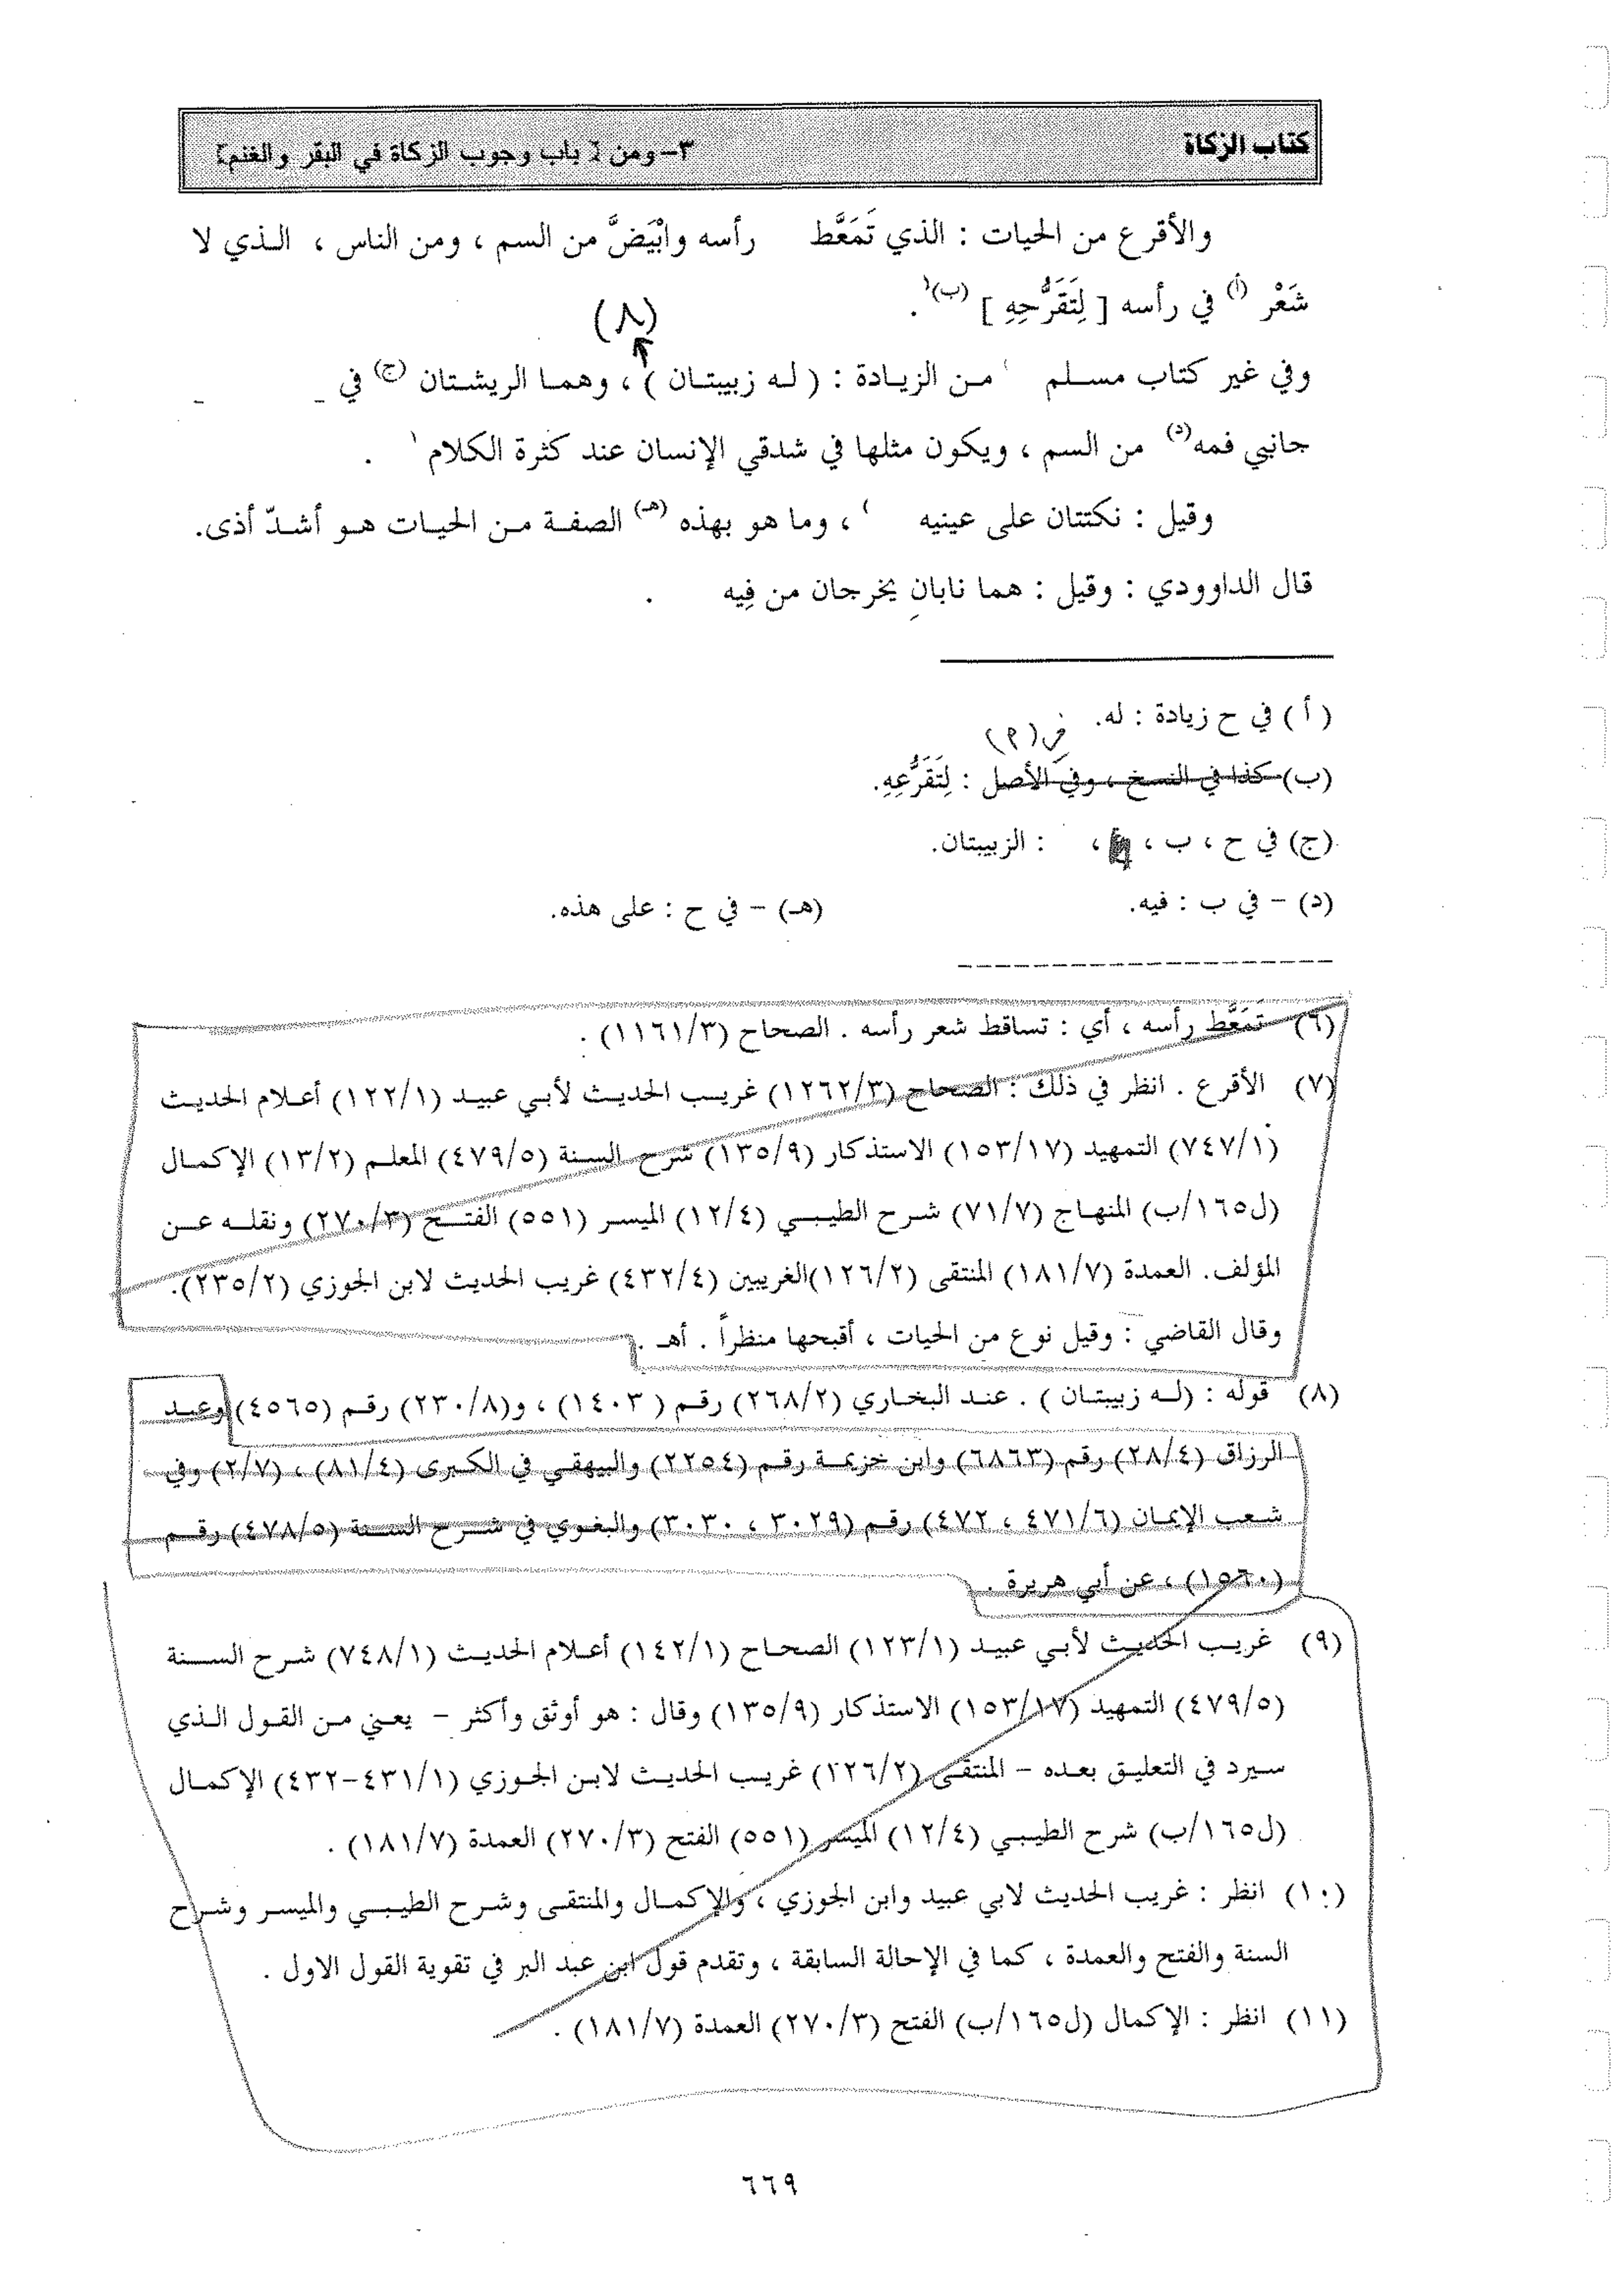 كتاب الزكاة ٣- ومن [ باب وجوب الزكاة في البقر والغنم]
والأقرع من الحيات : الذي تَمَعَّط رأسه وابْيَضَّ من السم ، ومن الناس ، الـذي لا
شَعْر (أ) في رأسه [ لِتَقَرُّحِهِ ] (ب) .
(٨)
وفي غير كتاب مسـلم من الزيـادة : ( لـه زبيبتـان ) ، وهمـا الريشـتان (ج) في
جانبي فمه (د) من السم ، ويكون مثلها في شدقي الإنسان عند كثرة الكلام .
وقيل : نكتتان على عينيه ، وما هو بهذه (هـ) الصفـة مـن الحيـات هـو أشـدّ أذى.
قال الداوودي : وقيل : هما نابانِ يخرجان من فِيه .
( أ ) في ح زيادة : له.
(ب) كذا في النسخ ، وفي الأصل : لِتَقَرُّعِهِ.
(ج) في ح ، ب ، ، : الزبيبتان.
(د) – في ب : فيه. (هـ) – في ح : على هذه.
(٦) تَمَعَّط رأسه ، أي : تساقط شعر رأسه . الصحاح (١١٦١/٣) .
(٧) الأقرع . انظر في ذلك : الصحاح (١٢٦٢/٣) غريـب الحديـث لأبـي عبيـد (١٢٢/١) أعـلام الحديـث
(٧٤٧/١) التمهيد (١٥٣/١٧) الاستذكار (١٣٥/٩) شرح السـنة (٤٧٩/٥) المعلـم (١٣/٢) الإكمـال
(ل١٦٥/ب) المنهـاج (٧١/٧) شـرح الطيبـي (١٢/٤) الميسـر (٥٥١) الفتـح (٢٧٠/٣) ونقلـه عـن
المؤلف. العمدة (١٨١/٧) المنتقى (١٢٦/٢)الغريبين (٤٣٢/٤) غريب الحديث لابن الجوزي (٢٣٥/٢).
وقال القاضي : وقيل نوع من الحيات ، أقبحها منظراً . أهـ .
(٨) قوله : (لـه زبيبتـان ) . عنـد البخـاري (٢٦٨/٢) رقـم ( ١٤٠٣) ، و(٢٣٠/٨) رقـم (٤٥٦٥) وعبـد
الرزاق (٢٨/٤) رقم (٦٨٦٣) وابن خزيمـة رقـم (٢٢٥٤) والبيهقـي في الكـبرى (٨١/٤) ، (٢/٧) وفي
شـعب الإيمـان (٤٧١/٦ ، ٤٧٢) رقـم (٣٠٢٩ ، ٣٠٣٠) والبغـوي في شـرح السـنة (٤٧٨/٥) رقـم
(١٥٦٠) ، عن أبي هريرة .
(٩) غريـب الحديـث لأبـي عبيـد (١٢٣/١) الصحـاح (١٤٢/١) أعـلام الحديـث (٧٤٨/١) شـرح السـنة
(٤٧٩/٥) التمهيد (١٥٣/١٧) الاستذكار (١٣٥/٩) وقال : هو أوثق وأكثر – يعـني مـن القـول الـذي
سـيرد في التعليـق بعـده – المنتقـى (١٢٦/٢) غريـب الحديـث لابـن الجـوزي (٤٣١/١-٤٣٢) الإكمـال
(ل١٦٥/ب) شرح الطيبـي (١٢/٤) الميسر (٥٥١) الفتح (٢٧٠/٣) العمدة (١٨١/٧) .
(١٠) انظر : غريب الحديث لابي عبيد وابن الجوزي ، والإكمـال والمنتقـى وشـرح الطيبـي والميسـر وشـرح
السنة والفتح والعمدة ، كما في الإحالة السابقة ، وتقدم قول ابن عبد البر في تقوية القول الاول .
(١١) انظر : الإكمال (ل١٦٥/ب) الفتح (٢٧٠/٣) العمدة (١٨١/٧) .
٦٦٩